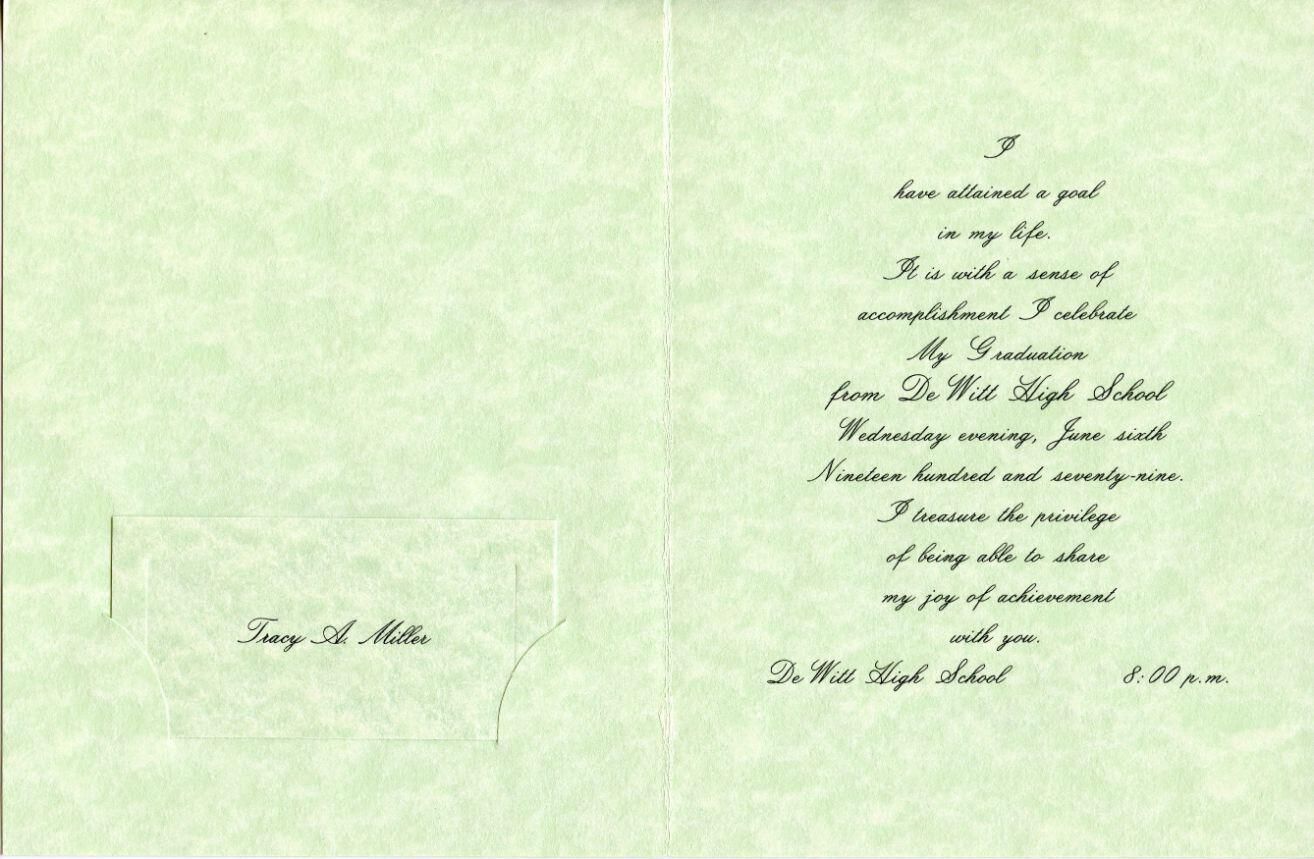 Tracy A. Miller
I
have attained a goal
in my life.
It is with a sense of
accomplishment I celebrate
My Graduation
from DeWitt High School
Wednesday evening, June sixth
Nineteen hundred and seventy-nine.
I treasure the privilege
of being able to share
my joy of achievement
with you.
DeWitt High School 8:00 p.m.